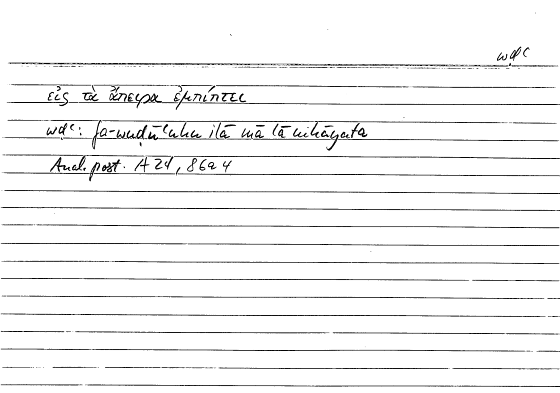 wḍʿ
εἰς τὰ ἄπειρα ἐμπίπτει
wḍʿ: fa-wuḍūʿuhu ilā mā lā nihāyata
Anal. post. A 24, 86a4